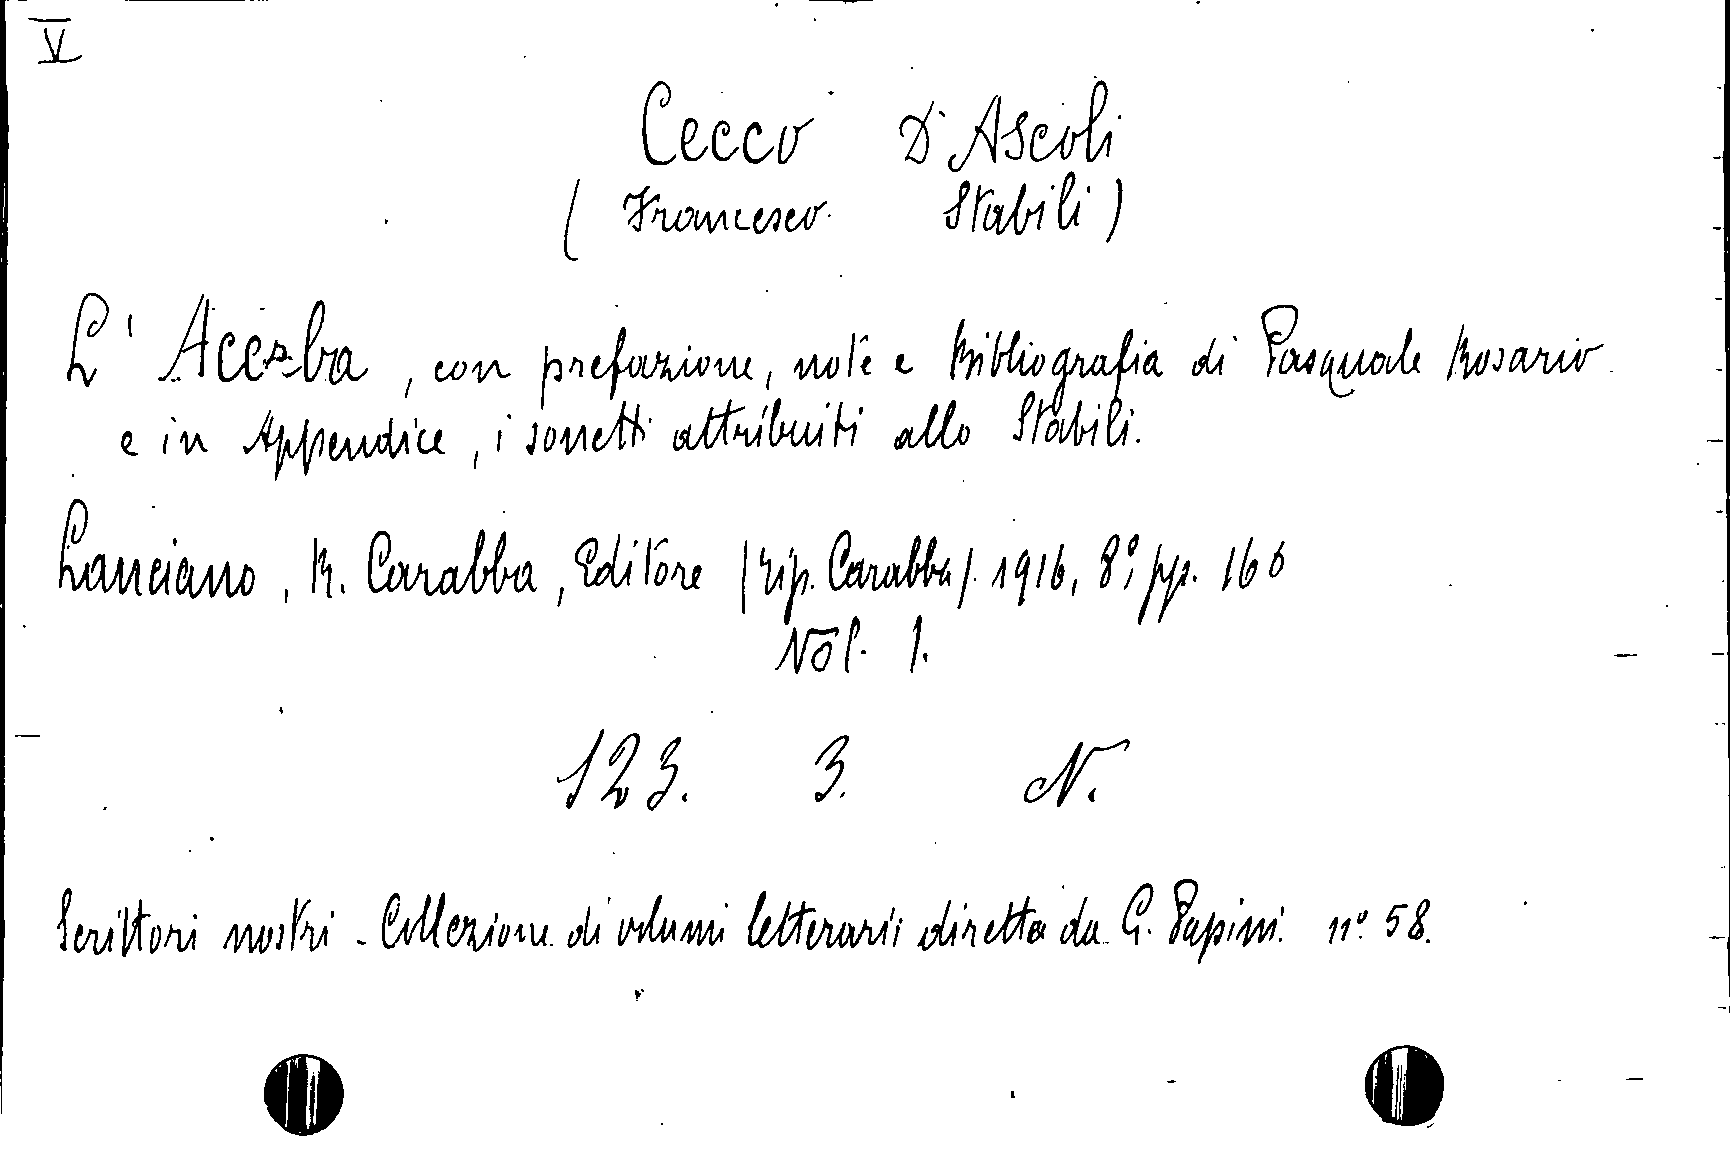 V
Cecco D'Ascoli
(Francesco Stabili)
L'Acerba, con prefazione, note e Bibliografia di Pasquale Rosario
e in Appendice, i sonetti attribuiti allo Stabili.
Lanciano, R. Carabba, Editore (tip. Carabba). 1916, 8°, pp. 166
Vol. 1.
123. 3. N.
Scrittori nostri - Collezione di volumi letterarii diretta da G. Papini. n° 58.